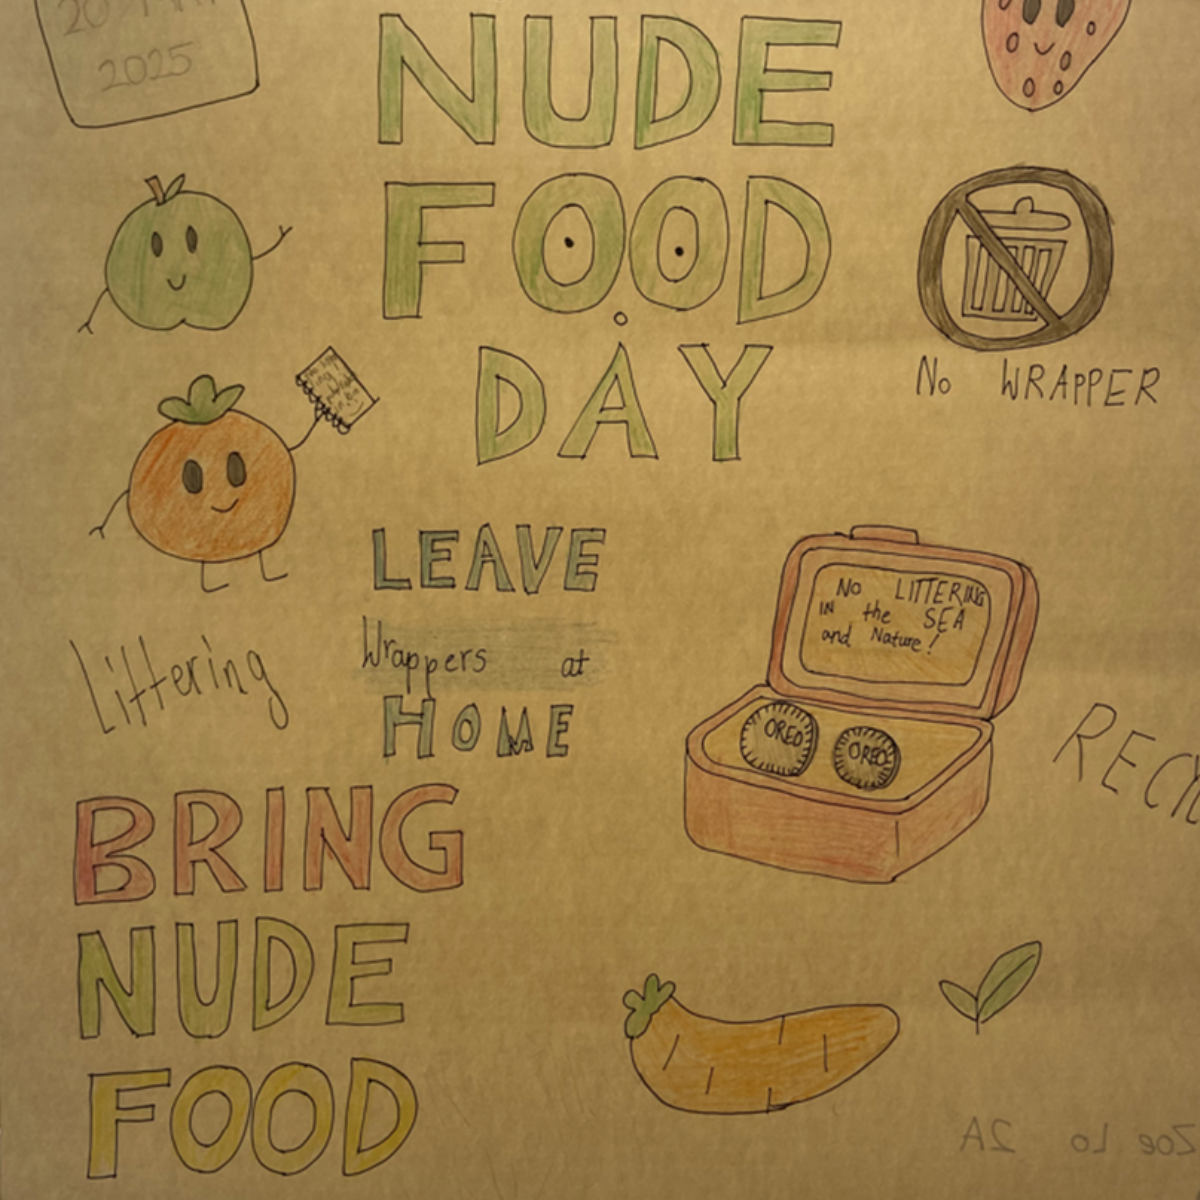 2025
NUDE
FOOD
DAY
NO WRAPPER
LEAVE
Wrappers at
HOME
Littering
NO LITTERING
IN the SEA
and Nature!
OREO
OREO
RECYC
BRING
NUDE
FOOD
Zoe Lo 2A